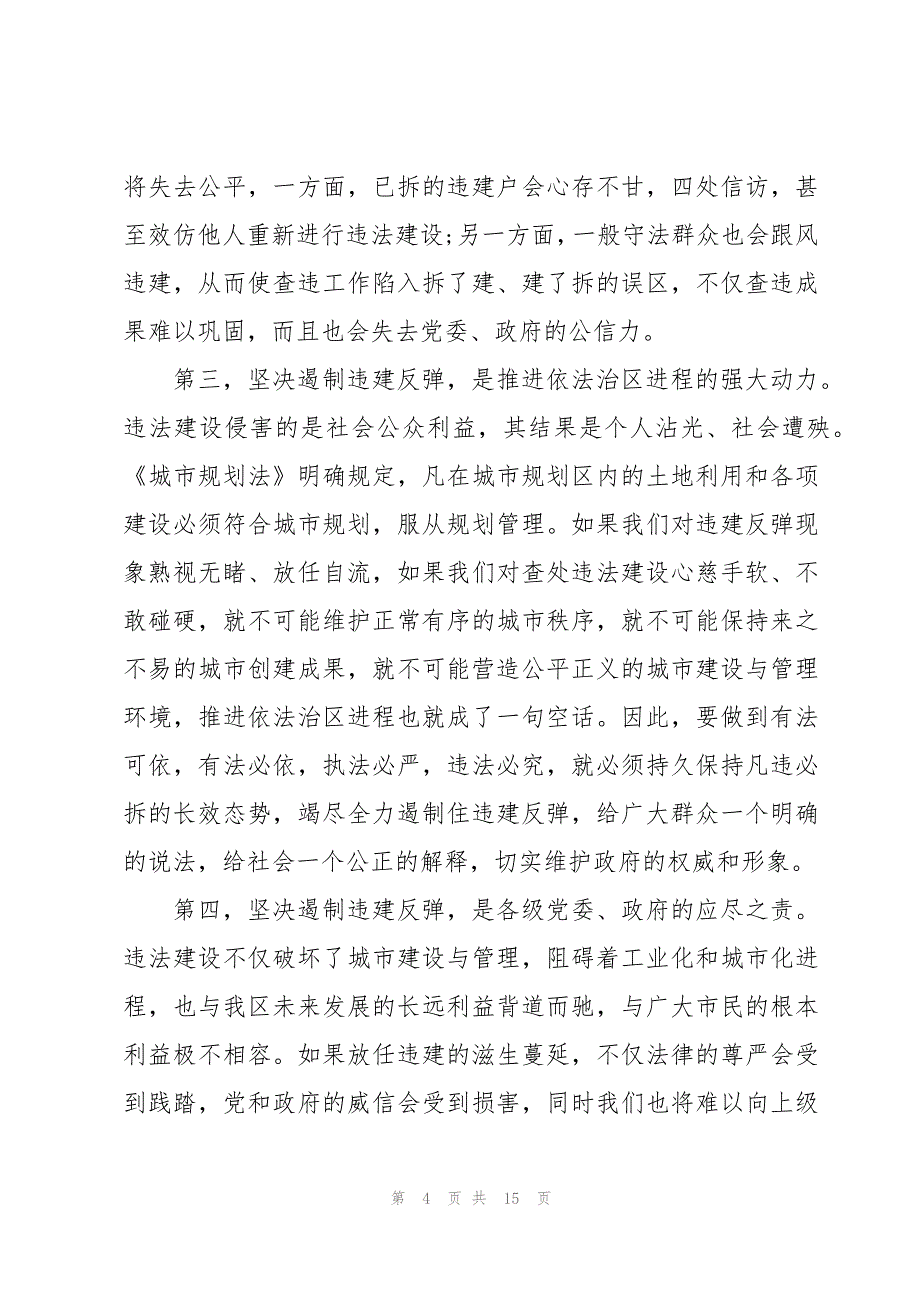 将失去公平，一方面，已拆的违建户会心存不甘，四处信访，甚
至效仿他人重新进行违法建设;另一方面，一般守法群众也会跟风
违建，从而使查违工作陷入拆了建、建了拆的误区，不仅查违成
果难以巩固，而且也会失去党委、政府的公信力。
第三，坚决遏制违建反弹，是推进依法治区进程的强大动力。
违法建设侵害的是社会公众利益，其结果是个人沾光、社会遭殃。
《城市规划法》明确规定，凡在城市规划区内的土地利用和各项
建设必须符合城市规划，服从规划管理。如果我们对违建反弹现
象熟视无睹、放任自流，如果我们对查处违法建设心慈手软、不
敢碰硬，就不可能维护正常有序的城市秩序，就不可能保持来之
不易的城市创建成果，就不可能营造公平正义的城市建设与管理
环境，推进依法治区进程也就成了一句空话。因此，要做到有法
可依，有法必依，执法必严，违法必究，就必须持久保持凡违必
拆的长效态势，竭尽全力遏制住违建反弹，给广大群众一个明确
的说法，给社会一个公正的解释，切实维护政府的权威和形象。
第四，坚决遏制违建反弹，是各级党委、政府的应尽之责。
违法建设不仅破坏了城市建设与管理，阻碍着工业化和城市化进
程，也与我区未来发展的长远利益背道而驰，与广大市民的根本
利益极不相容。如果放任违建的滋生蔓延，不仅法律的尊严会受
到践踏，党和政府的威信会受到损害，同时我们也将难以向上级
第 4 页 共 15 页